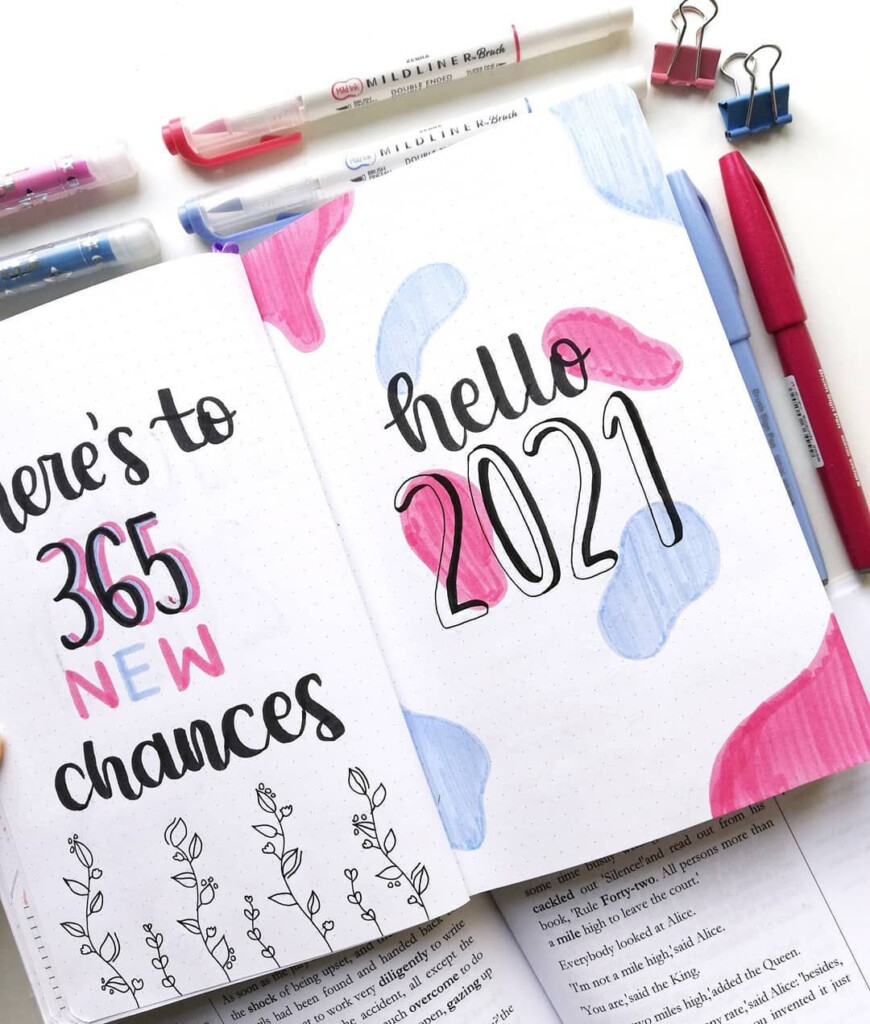 ZEBRA
MILDLINER Brush
Mild Ink
DOUBLE ENDED
MILDLINER Brush
Mild Ink
here's to
365
NEW
chances
hello
2021
As soon as the
the shock of being upset, and
had been found and handed back
to work very diligently to write
the accident, all except the
much overcome to do
open, gazing up
some time busily
cackled out 'Silence!' and read out from his
book, 'Rule Forty-two. All persons more than
a mile high to leave the court.'
Everybody looked at Alice.
'I'm not a mile high,' said Alice.
'You are,' said the King.
two miles high,' added the Queen.
any rate,' said Alice: 'besides,
you invented it just